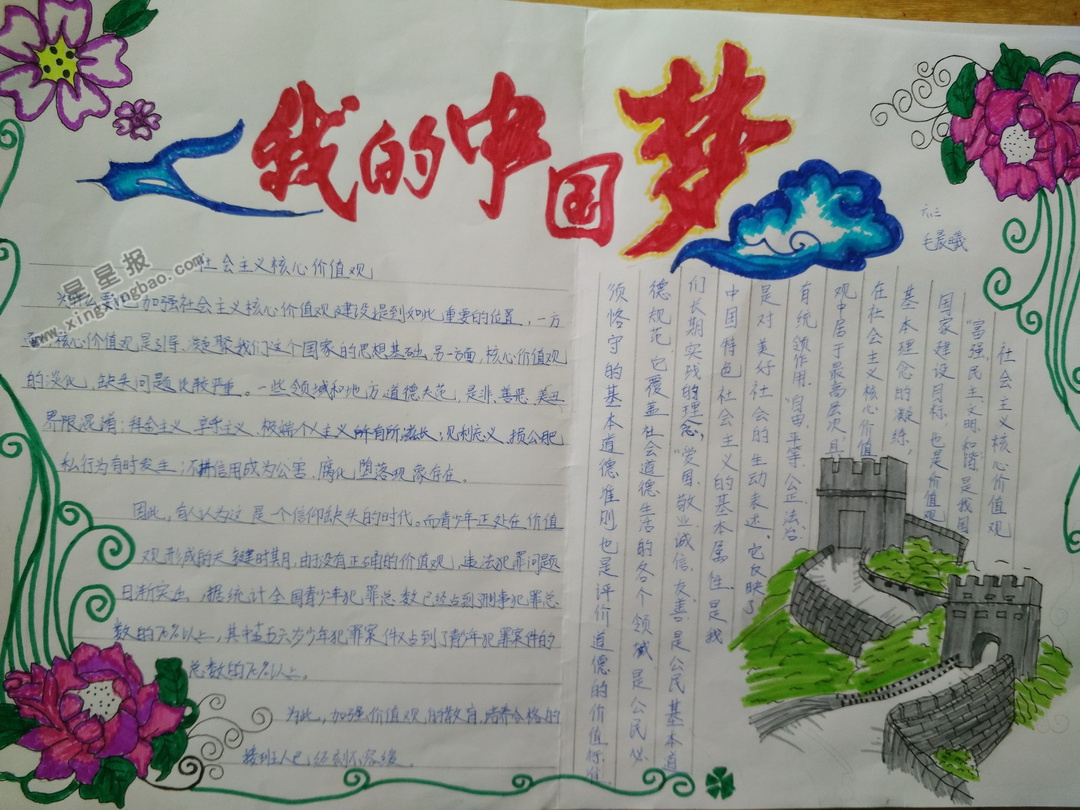 我的中国梦
六.三
毛晨曦
星星报
www.xingxingbao.com
社会主义核心价值观
为什么要把加强社会主义核心价值观建设提到如此重要的位置，一方
面，核心价值观是引导、凝聚我们这个国家的思想基础。另一方面，核心价值观
的淡化，缺失问题比较严重。一些领域和地方道德失范，是非、善恶、美丑
界限混淆；拜金主义、享乐主义、极端个人主义所有所滋长；见利忘义、损公肥
私行为有时发生；不讲信用成为公害，腐化堕落现象存在。
因此，有人认为这是一个信仰缺失的时代。而青少年正处在价值
观形成的关键时期，由于没有正确的价值观，违法犯罪问题
日渐突出，据统计全国青少年犯罪总数已经占到刑事犯罪总
数的70%以上，其中十五六岁少年犯罪案件又占到了青少年犯罪案件的
总数的70%以上。
为此，加强价值观的教育，培养合格的
接班人已经刻不容缓。
社会主义核心价值观
“富强、民主、文明、和谐”是我国
国家建设目标，也是价值观
基本理念的凝练，
在社会主义核心价值
观中居于最高层次，具
有统领作用。“自由、平等、公正、法治”
是对美好社会的生动表述。它反映了
中国特色社会主义的基本属性，是我
们长期实践的理念。“爱国、敬业、诚信、友善”是公民基本道
德规范，它覆盖社会道德生活的各个领域，是公民必
须恪守的基本道德准则也是评价道德的价值标准